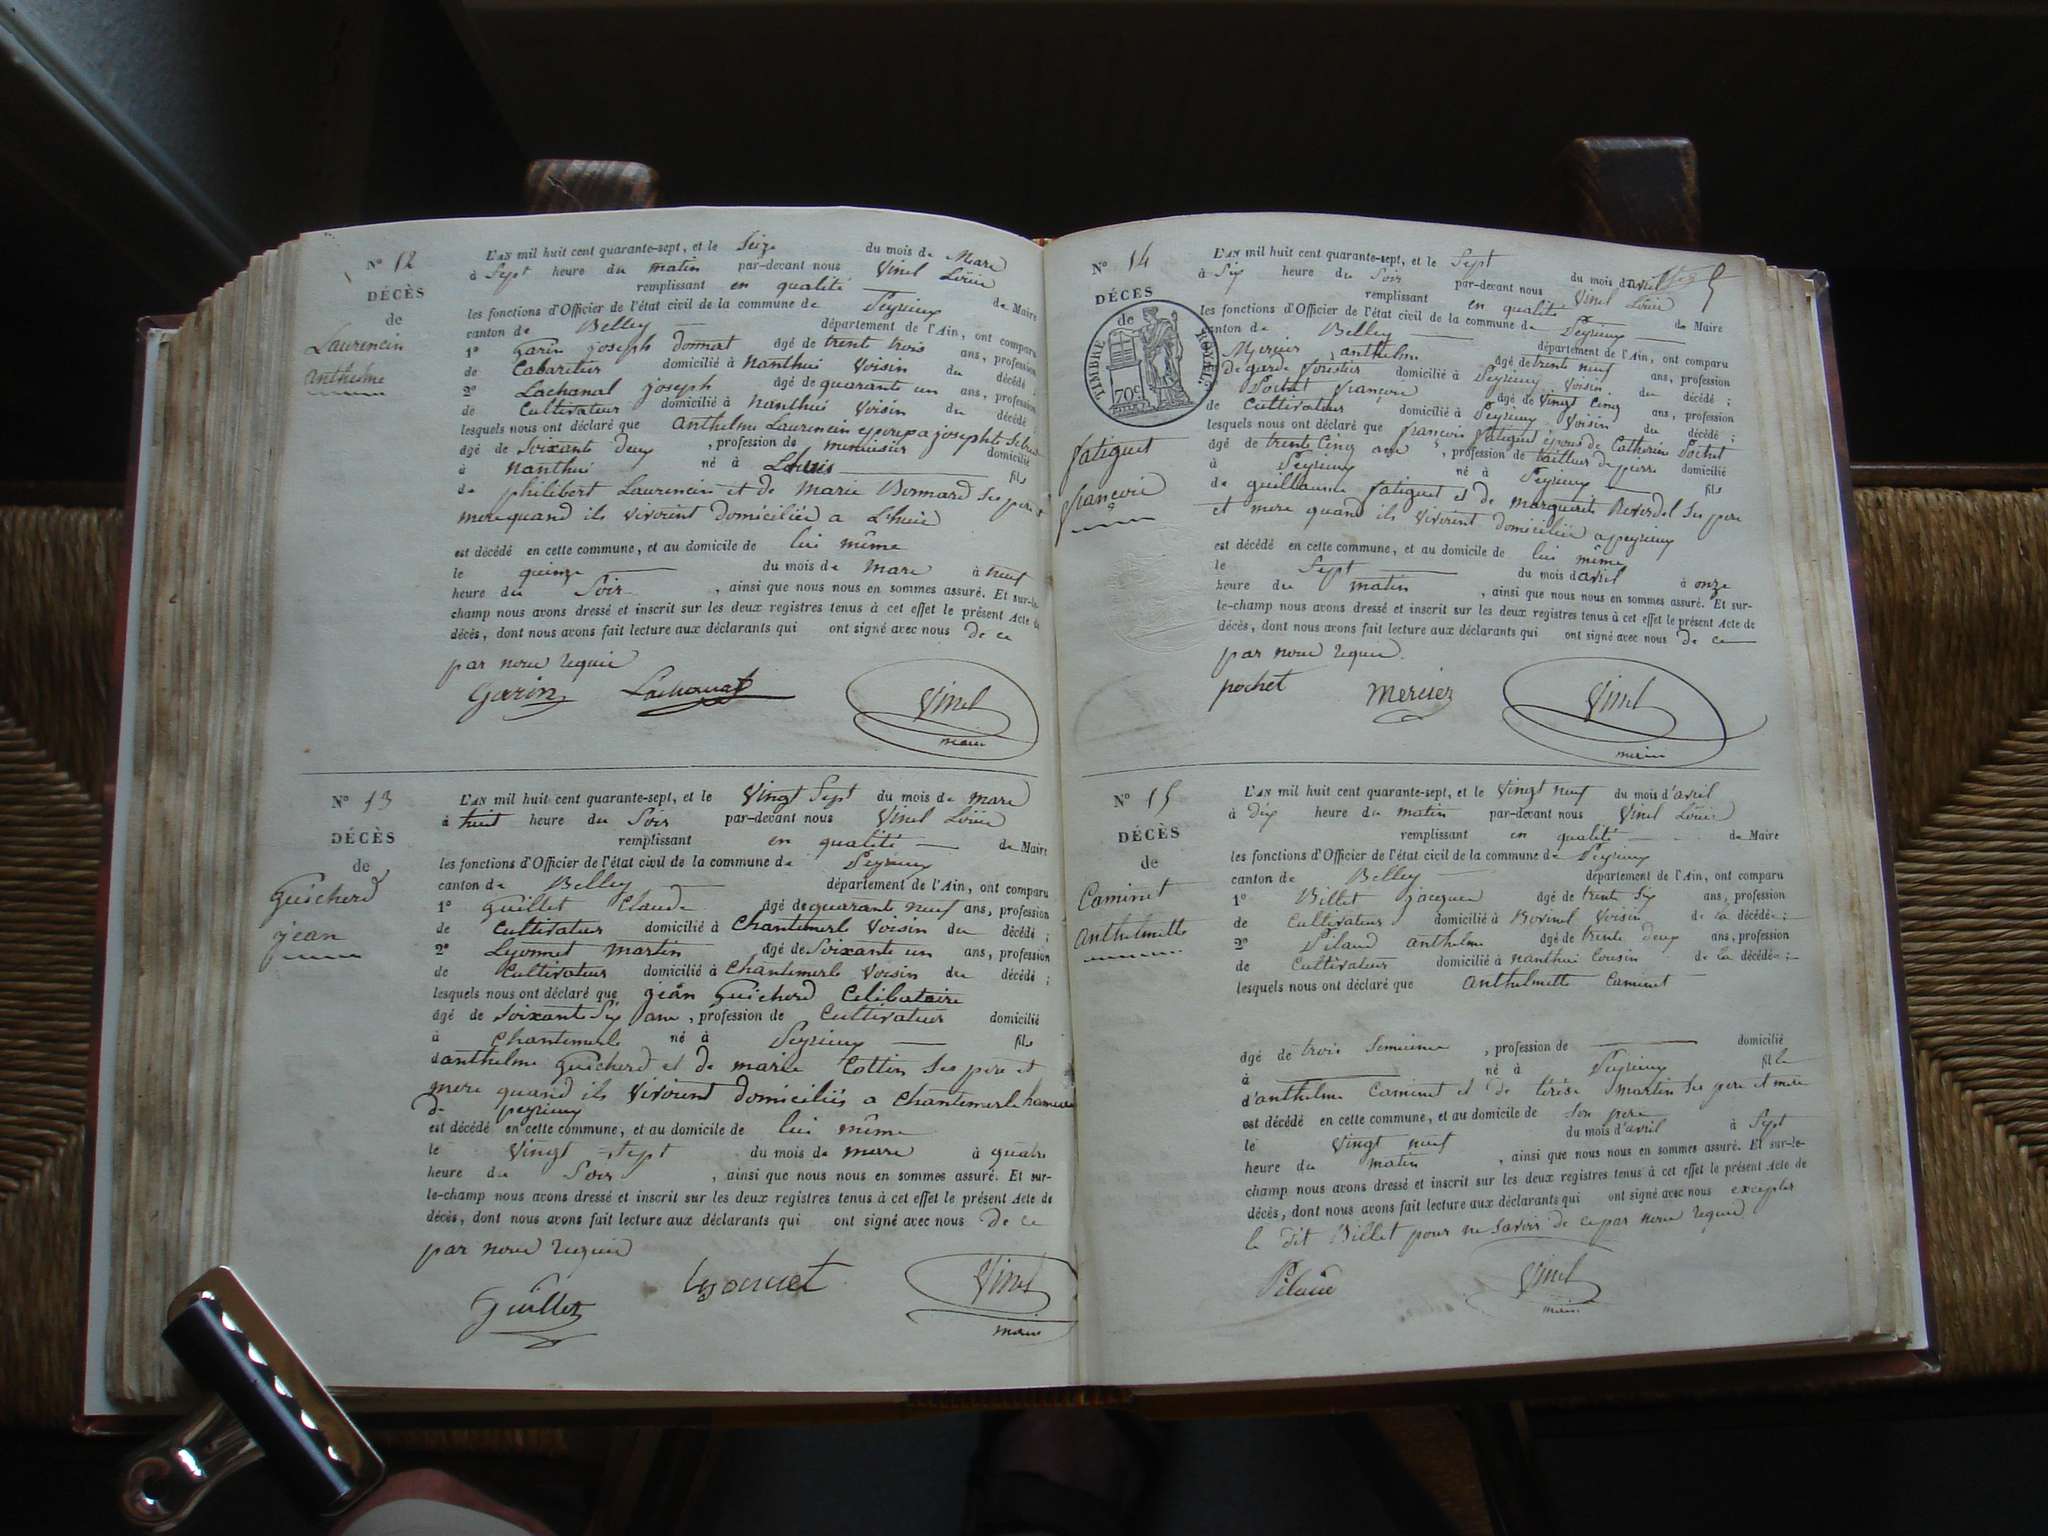 N° 12
DÉCÈS
de
Laurencin
anthelme
L'AN mil huit cent quarante-sept, et le Seize du mois de Mars
à Sept heure du matin par-devant nous Vinel Loüis
remplissant en qualité de Maire
les fonctions d'Officier de l'état civil de la commune de Peyrieux
canton de Belley département de l'Ain, ont comparu
1° Garin joseph donnat âgé de trente trois ans, profession
de Cabaretier domicilié à nanthui Voisin du décédé
2° Lachanal joseph âgé de quarante un ans, profession
de Cultivateur domicilié à nanthui Voisin du décédé
lesquels nous ont déclaré que anthelme Laurencin josephte
âgé de Soixante deux , profession de menuisier domicilié
à nanthui né à Lhuis fils
de philibert Laurencin et de Marie Bernard Ses pere et
mere quand ils vivoient domiciliés a Lhuis
est décédé en cette commune, et au domicile de lui même
le quinze du mois de mars à neuf
heure du Soir , ainsi que nous nous en sommes assuré. Et sur-le-
champ nous avons dressé et inscrit sur les deux registres tenus à cet effet le présent Acte de
décès, dont nous avons fait lecture aux déclarants qui ont signé avec nous de ce
par nous requis
Garin Lachanal Vinel
maire
N° 13
DÉCÈS
de
Guicherd
jean
L'AN mil huit cent quarante-sept, et le Vingt Sept du mois de mars
à huit heure du Soir par-devant nous Vinel Loüis
remplissant en qualité de Maire
les fonctions d'Officier de l'état civil de la commune de Peyrieux
canton de Belley département de l'Ain, ont comparu
1° Guillet Claude âgé de quarante neuf ans, profession
de Cultivateur domicilié à Chantemerle Voisin du décédé ;
2° Lyonnet martin âgé de Soixante un ans, profession
de Cultivateur domicilié à Chantemerle Voisin du décédé ;
lesquels nous ont déclaré que jean Guicherd Celibataire
âgé de Soixante Six ans , profession de Cultivateur domicilié
à Chantemerle né à Peyrieux fils
d'anthelme Guicherd et de marie Cottin Ses pere et
mere quand ils vivoient domiciliés a Chantemerle hameau
de peyrieux
est décédé en cette commune, et au domicile de lui même
le Vingt Sept du mois de mars à quatre
heure du Soir , ainsi que nous nous en sommes assuré. Et sur-
le-champ nous avons dressé et inscrit sur les deux registres tenus à cet effet le présent Acte de
décès, dont nous avons fait lecture aux déclarants qui ont signé avec nous de ce
par nous requis
Guillet Lyonnet Vinel
maire
N° 14
DÉCÈS
de
TIMBRE ROYAL.
70c.
fatiguet
françois
L'AN mil huit cent quarante-sept, et le Sept du mois d'avril
à Six heure du Soir par-devant nous Vinel Loüis
remplissant en qualité de Maire
les fonctions d'Officier de l'état civil de la commune de Peyrieux
canton de Belley département de l'Ain, ont comparu
Mercier anthelme âgé de trente neuf ans, profession
De garde forestier domicilié à Peyrieux Voisin du décédé ;
Pochet françois âgé de Vingt Cinq ans, profession
de Cultivateur domicilié à Peyrieux Voisin du décédé ;
lesquels nous ont déclaré que françois fatiguet epous de Catherine Pochet
âgé de trente Cinq ans , profession de tailleur de pierre domicilié
à Peyrieux né à Peyrieux fils
de guillaume fatiguet et de marguerite Reverdel Ses pere
et mere quand ils vivoient domiciliés a peyrieux
est décédé en cette commune, et au domicile de lui même
le Sept du mois d'avril à onze
heure du matin , ainsi que nous nous en sommes assuré. Et sur-
le-champ nous avons dressé et inscrit sur les deux registres tenus à cet effet le présent Acte de
décès, dont nous avons fait lecture aux déclarants qui ont signé avec nous de ce
par nous requis.
pochet mercier Vinel
maire
N° 15
DÉCÈS
de
Caminet
Anthelmette
L'AN mil huit cent quarante-sept, et le Vingt neuf du mois d'avril
à dix heure du matin par-devant nous Vinel Loüis
remplissant en qualité de Maire
les fonctions d'Officier de l'état civil de la commune de Peyrieux
canton de Belley département de l'Ain, ont comparu
1° Billet jacques âgé de trente Six ans, profession
de Cultivateur domicilié à Bovinel Voisin de la décédée ;
2° Pilaud anthelme âgé de trente deux ans, profession
de Cultivateur domicilié à nanthui Cousin de la décédée ;
lesquels nous ont déclaré que Anthelmette Caminet
âgé de trois Semaines , profession de domicilié
à né à Peyrieux fille
d'anthelme Caminet et de térèse martin Ses pere et mere
est décédé en cette commune, et au domicile de Son pere
le Vingt neuf du mois d'avril à Sept
heure du matin , ainsi que nous nous en sommes assuré. Et sur-le-
champ nous avons dressé et inscrit sur les deux registres tenus à cet effet le présent Acte de
décès, dont nous avons fait lecture aux déclarants qui ont signé avec nous excepter
le dit Billet pour ne Savoir de ce par nous requis
Pilaud Vinel
maire